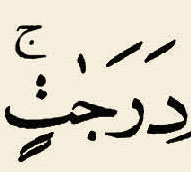 دَرَجٰتٍۚ